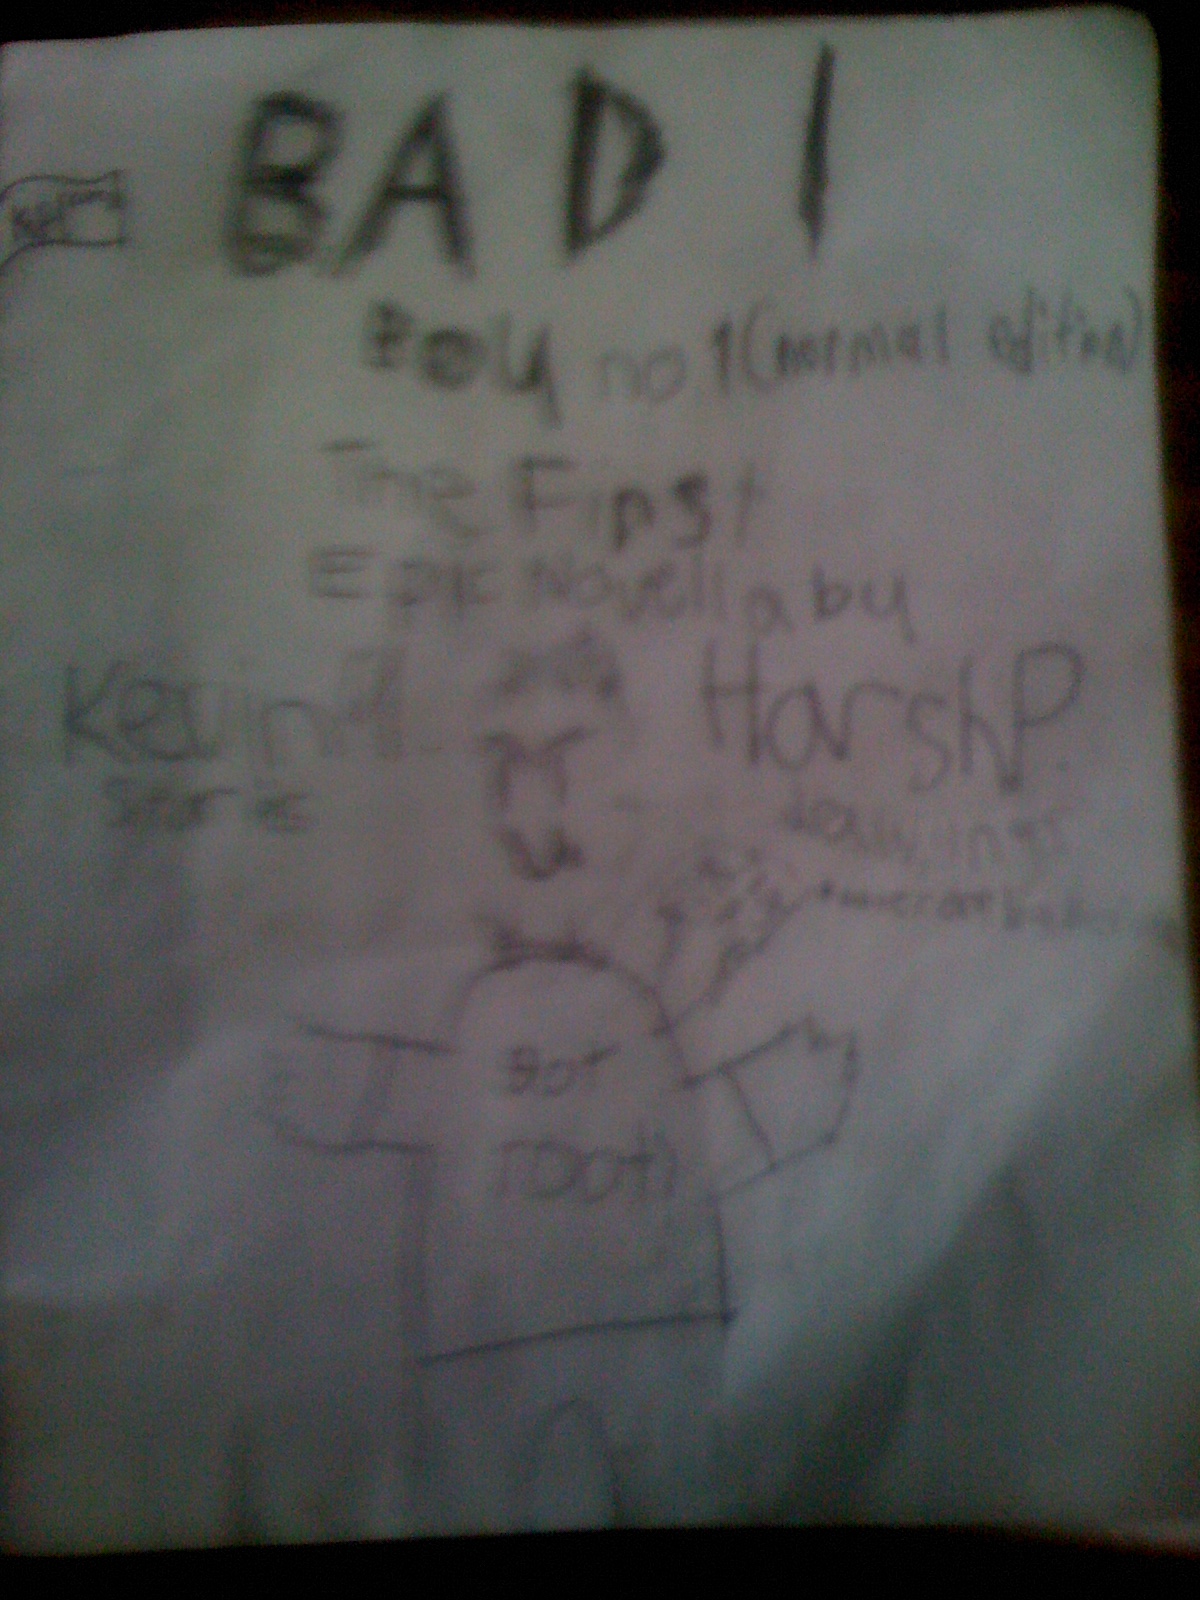 BAD 1
Boy no 1 (normal edition)
The First
Epic Novella by
Kevin A. HarshP.
Stories drawings
Got
rooti